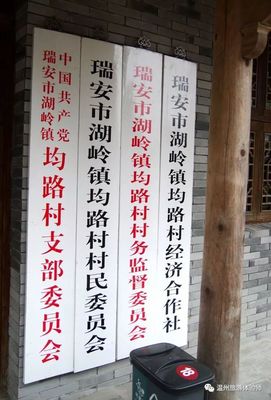 中国共产党
瑞安市湖岭镇
均路村支部委员会
瑞安市湖岭镇均路村村民委员会
瑞安市湖岭镇均路村村务监督委员会
瑞安市湖岭镇均路村经济合作社
温州旅游体验师